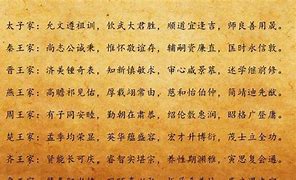 太子家：允文遵祖训，钦武大君胜，顺道宜逢吉，师良善用晟。
秦王家：尚志公诚秉，惟怀敬谊存，辅嗣资廉直，匡时永信敦。
晋王家：济美钟奇表，知新慎敏求，审心咸景慕，述学继前修。
燕王家：高瞻祁见佑，厚载翊常由，慈和怡伯仲，简靖迪先猷。
周王家：有子同安睦，勤朝在肃恭，绍伦敷惠润，昭格广登庸。
楚王家：孟季均荣显，英华蕴盛容，宏才升博衍，茂士立全功。
齐王家：贤能长可庆，睿智实堪宗，养性期渊雅，寅思复会通。